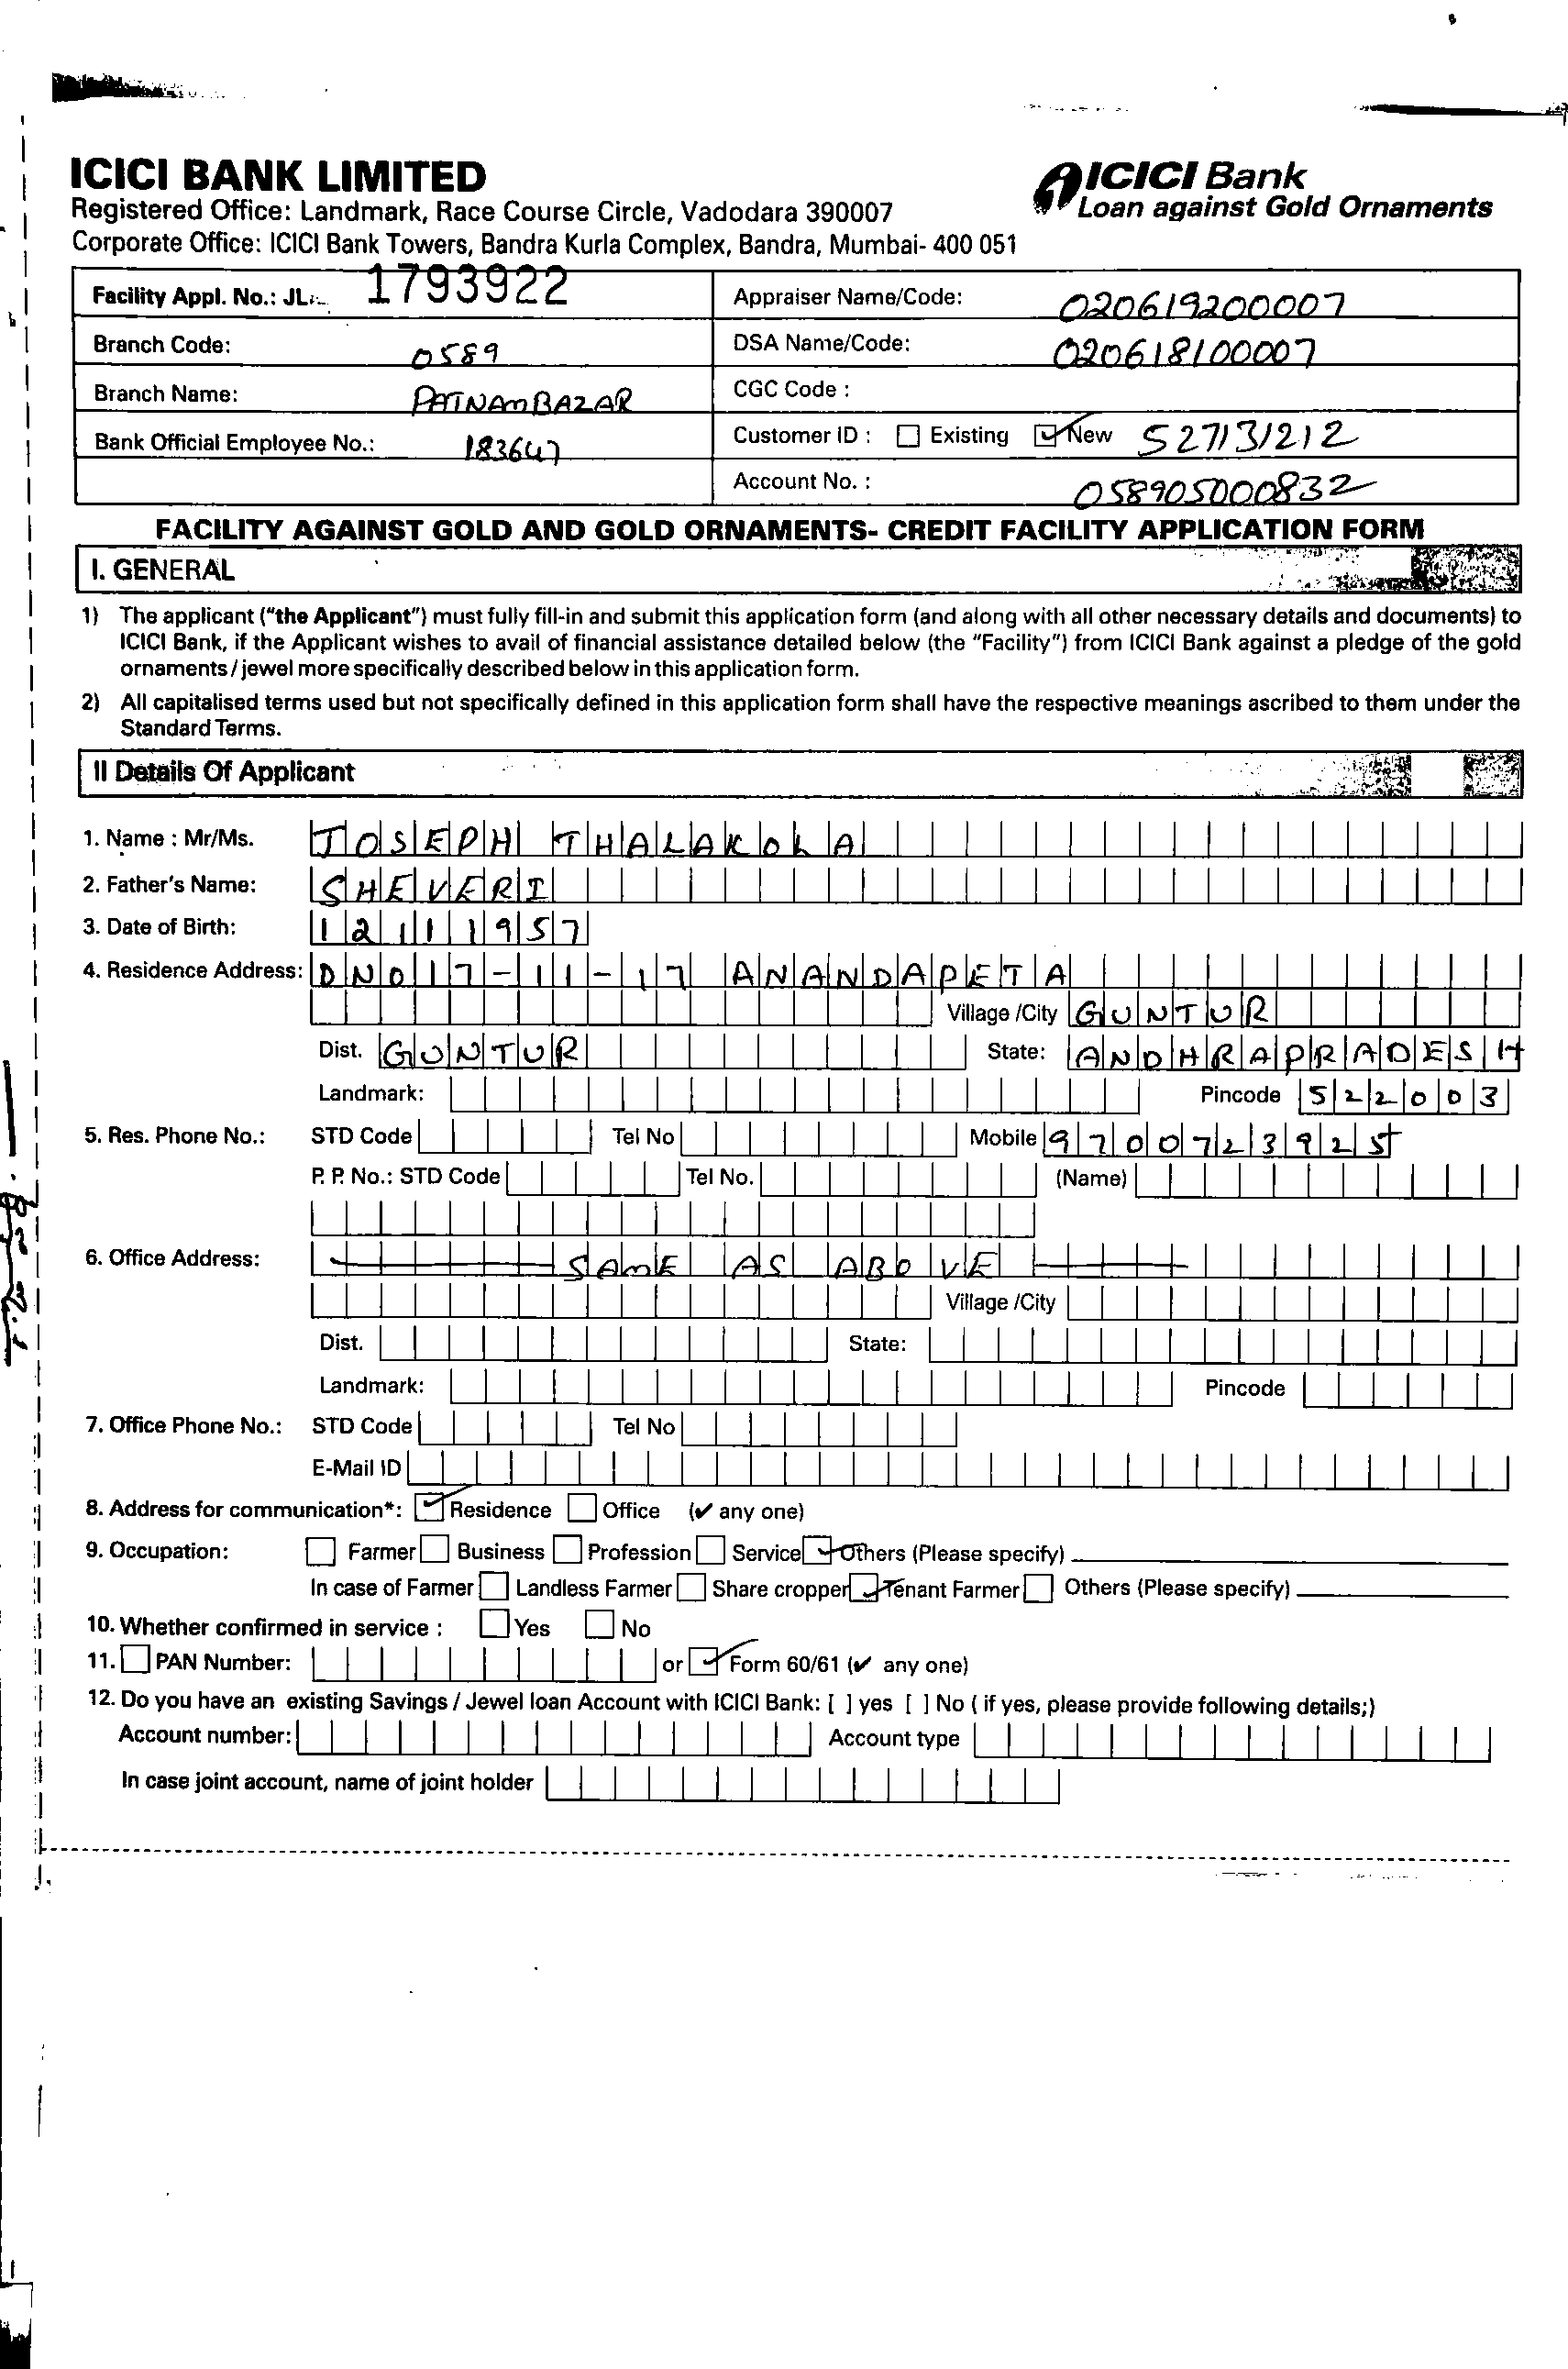 ICICI BANK LIMITED
Registered Office: Landmark, Race Course Circle, Vadodara 390007
Corporate Office: ICICI Bank Towers, Bandra Kurla Complex, Bandra, Mumbai- 400 051
ICICI Bank
Loan against Gold Ornaments
Facility Appl. No.: JL 1793922
Appraiser Name/Code: 020619200007
Branch Code: 0589
DSA Name/Code: 020618100007
Branch Name: PATNAMBAZAR
CGC Code :
Bank Official Employee No.: 183647
Customer ID : ☐ Existing ☑ New 527131212
Account No. : 058905000832
FACILITY AGAINST GOLD AND GOLD ORNAMENTS- CREDIT FACILITY APPLICATION FORM
I. GENERAL
1) The applicant ("the Applicant") must fully fill-in and submit this application form (and along with all other necessary details and documents) to
ICICI Bank, if the Applicant wishes to avail of financial assistance detailed below (the "Facility") from ICICI Bank against a pledge of the gold
ornaments / jewel more specifically described below in this application form.
2) All capitalised terms used but not specifically defined in this application form shall have the respective meanings ascribed to them under the
Standard Terms.
II Details Of Applicant
1. Name : Mr/Ms. JOSEPH THALAKOLA
2. Father's Name: SHEVERI
3. Date of Birth: 12111957
4. Residence Address: DNO17-11-17 ANANDAPETA
Village /City GUNTUR
Dist. GUNTUR State: ANDHRAPRADESH
Landmark: Pincode 522003
5. Res. Phone No.: STD Code Tel No Mobile 9700723925
P. P. No.: STD Code Tel No. (Name)
6. Office Address: SAME AS ABOVE
Village /City
Dist. State:
Landmark: Pincode
7. Office Phone No.: STD Code Tel No
E-Mail ID
8. Address for communication*: ☑ Residence ☐ Office (✔ any one)
9. Occupation: ☐ Farmer ☐ Business ☐ Profession ☐ Service ☑ Others (Please specify)
In case of Farmer ☐ Landless Farmer ☐ Share cropper ☑ Tenant Farmer ☐ Others (Please specify)
10. Whether confirmed in service : ☐ Yes ☐ No
11. ☐ PAN Number: or ☑ Form 60/61 (✔ any one)
12. Do you have an existing Savings / Jewel loan Account with ICICI Bank: [ ] yes [ ] No ( if yes, please provide following details;)
Account number: Account type
In case joint account, name of joint holder